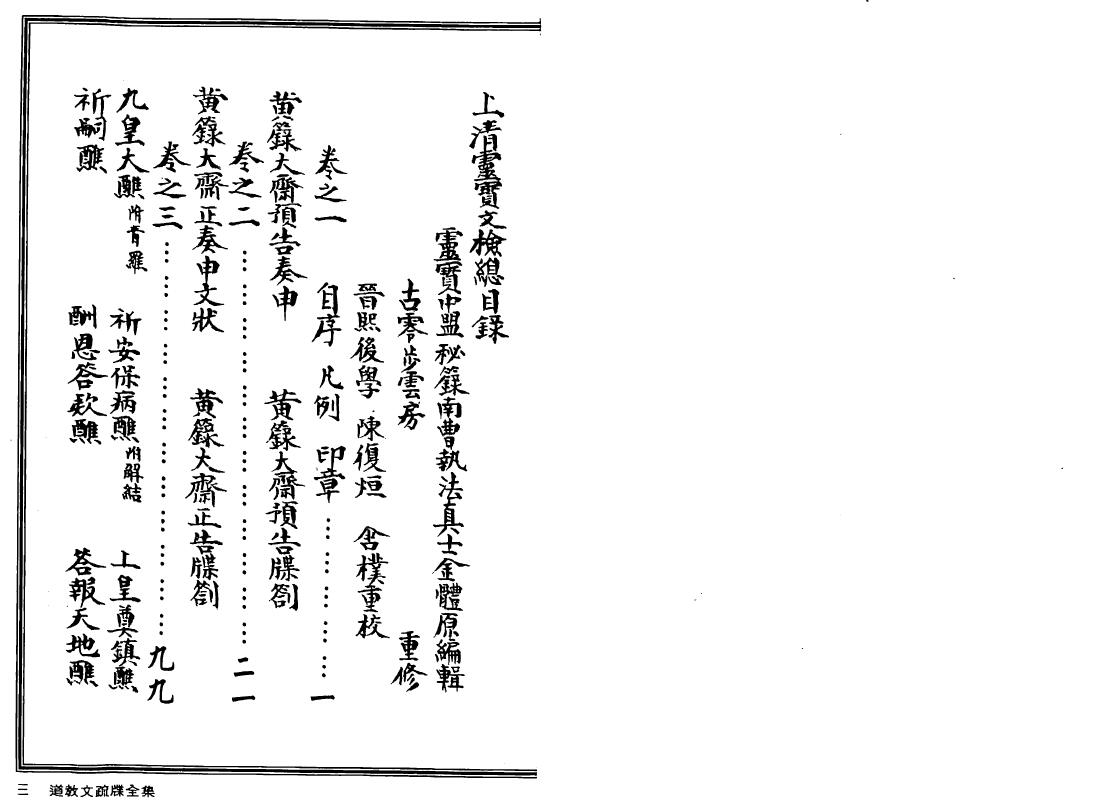 上清靈寶文檢總目錄
靈寶中盟秘籙南曹執法真士金體原編輯
古零步雲房 重修
晉熙後學 陳復烜 含樸重校
卷之一 自序 凡例 印章………………一
黃籙大齋預告奏申 黃籙大齋預告牒劄
卷之二………………二一
黃籙大齋正奏申文狀 黃籙大齋正告牒劄
卷之三………………九九
九皇大醮附青羅 祈安保病醮附解結 上皇奠鎮醮
祈嗣醮 酬恩答欵醮 答報天地醮
三 道教文疏牒全集